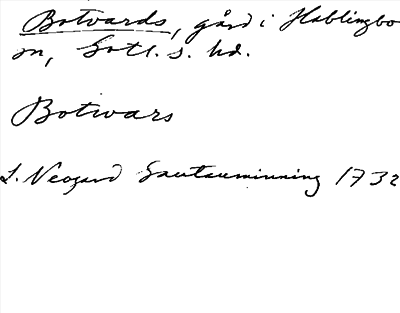 Botvards, gård i Hablingbo
sn, Gotl. s. hd.
Botvars
L. Neogard Gautauminning 1732